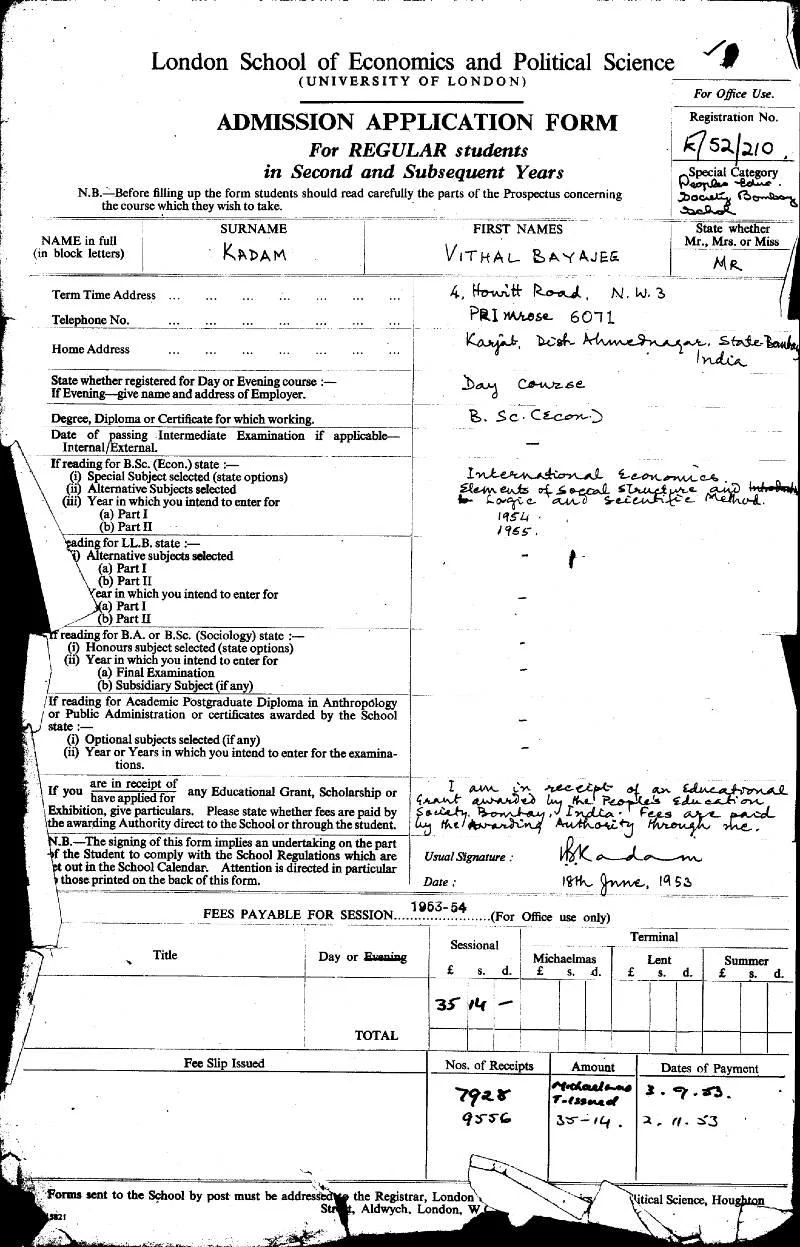 London School of Economics and Political Science
(UNIVERSITY OF LONDON)
For Office Use.
ADMISSION APPLICATION FORM
Registration No.
For REGULAR students
K/52/210
in Second and Subsequent Years
Special Category
Peoples Educ.
Society Bombay
School
N.B.—Before filling up the form students should read carefully the parts of the Prospectus concerning
the course which they wish to take.
SURNAME
FIRST NAMES
State whether
Mr., Mrs. or Miss
NAME in full
(in block letters)
KADAM
VITHAL BAYAJEE
MR
Term Time Address ... ... ... ... ... ...
4, Howitt Road, N.W.3
Telephone No. ... ... ... ... ... ...
PRImrose 6071
Home Address ... ... ... ... ... ...
Karjat, Dish Ahmednagar, State Bombay
India
State whether registered for Day or Evening course :—
If Evening—give name and address of Employer.
Day course
Degree, Diploma or Certificate for which working.
B. Sc. (Econ.)
Date of passing Intermediate Examination if applicable—
Internal/External.
—
If reading for B.Sc. (Econ.) state :—
(i) Special Subject selected (state options)
International Economics.
(ii) Alternative Subjects selected
Elements of Social Structure and
Logic and Scientific Method.
(iii) Year in which you intend to enter for
(a) Part I
1954.
(b) Part II
1955.
eading for LL.B. state :—
i) Alternative subjects selected
-
(a) Part I
(b) Part II
Year in which you intend to enter for
-
(a) Part I
(b) Part II
If reading for B.A. or B.Sc. (Sociology) state :—
(i) Honours subject selected (state options)
-
(ii) Year in which you intend to enter for
(a) Final Examination
-
(b) Subsidiary Subject (if any)
If reading for Academic Postgraduate Diploma in Anthropology
or Public Administration or certificates awarded by the School
state :—
-
(i) Optional subjects selected (if any)
(ii) Year or Years in which you intend to enter for the examina-
tions.
-
If you are in receipt of
have applied for any Educational Grant, Scholarship or
Exhibition, give particulars. Please state whether fees are paid by
the awarding Authority direct to the School or through the student.
I am in receipt of an Educational
Grant awarded by the People's Education
Society, Bombay, India. Fees are paid
by the Awarding Authority through me.
N.B.—The signing of this form implies an undertaking on the part
of the Student to comply with the School Regulations which are
et out in the School Calendar. Attention is directed in particular
those printed on the back of this form.
Usual Signature : VBKadam
Date : 18th June, 1953
FEES PAYABLE FOR SESSION 1953-54 (For Office use only)
Title
Day or Evening
Sessional
Terminal
Michaelmas
Lent
Summer
£ s. d. £ s. d. £ s. d. £ s. d.
35 14 —
TOTAL
Fee Slip Issued
Nos. of Receipts
Amount
Dates of Payment
7928
Michaelmas
T-issued
3.9.53.
9556
35-14.
2.11.53
Forms sent to the School by post must be addressed the Registrar, London litical Science, Houghton
Aldwych, London, W